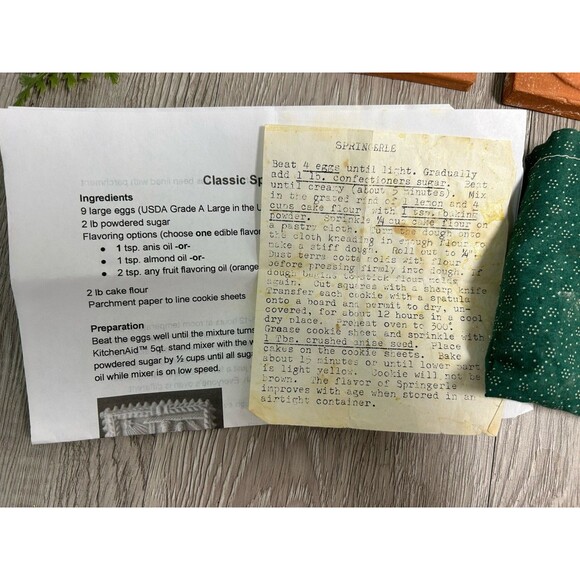 Classic Sp
Ingredients
9 large eggs (USDA Grade A Large in the U
2 lb powdered sugar
Flavoring options (choose one edible flavor
• 1 tsp. anis oil -or-
• 1 tsp. almond oil -or-
• 2 tsp. any fruit flavoring oil (orange
2 lb cake flour
Parchment paper to line cookie sheets
Preparation
Beat the eggs well until the mixture turn
KitchenAid™ 5qt. stand mixer with the w
powdered sugar by ½ cups until all sug
oil while mixer is on low speed.
SPRINGERLE
Beat 4 eggs until light. Gradually
add 1 lb. confectioners sugar. Beat
until creamy (about 5 minutes). Mix
in the grated rind of 1 lemon and 4
cups cake flour with 1 tsp. baking
powder. Sprinkle ¼ cup cake flour on
a pastry cloth. dough onto
the cloth kneading in enough flour to
make a stiff dough. Roll out to ¼".
Dust terra cotta molds with flour
before pressing firmly into dough. If
dough begins to stick flour molds
again. Cut squares with a sharp knife
Transfer each cookie with a spatula
onto a board and permit to dry, un-
covered, for about 12 hours in a cool
dry place. Preheat oven to 300°.
Grease cookie sheet and sprinkle with
1 Tbs. crushed anise seed. Place
cakes on the cookie sheets. Bake
about 15 minutes or until lower part
is light yellow. Cookie will not be
brown. The flavor of Springerle
improves with age when stored in an
airtight container.